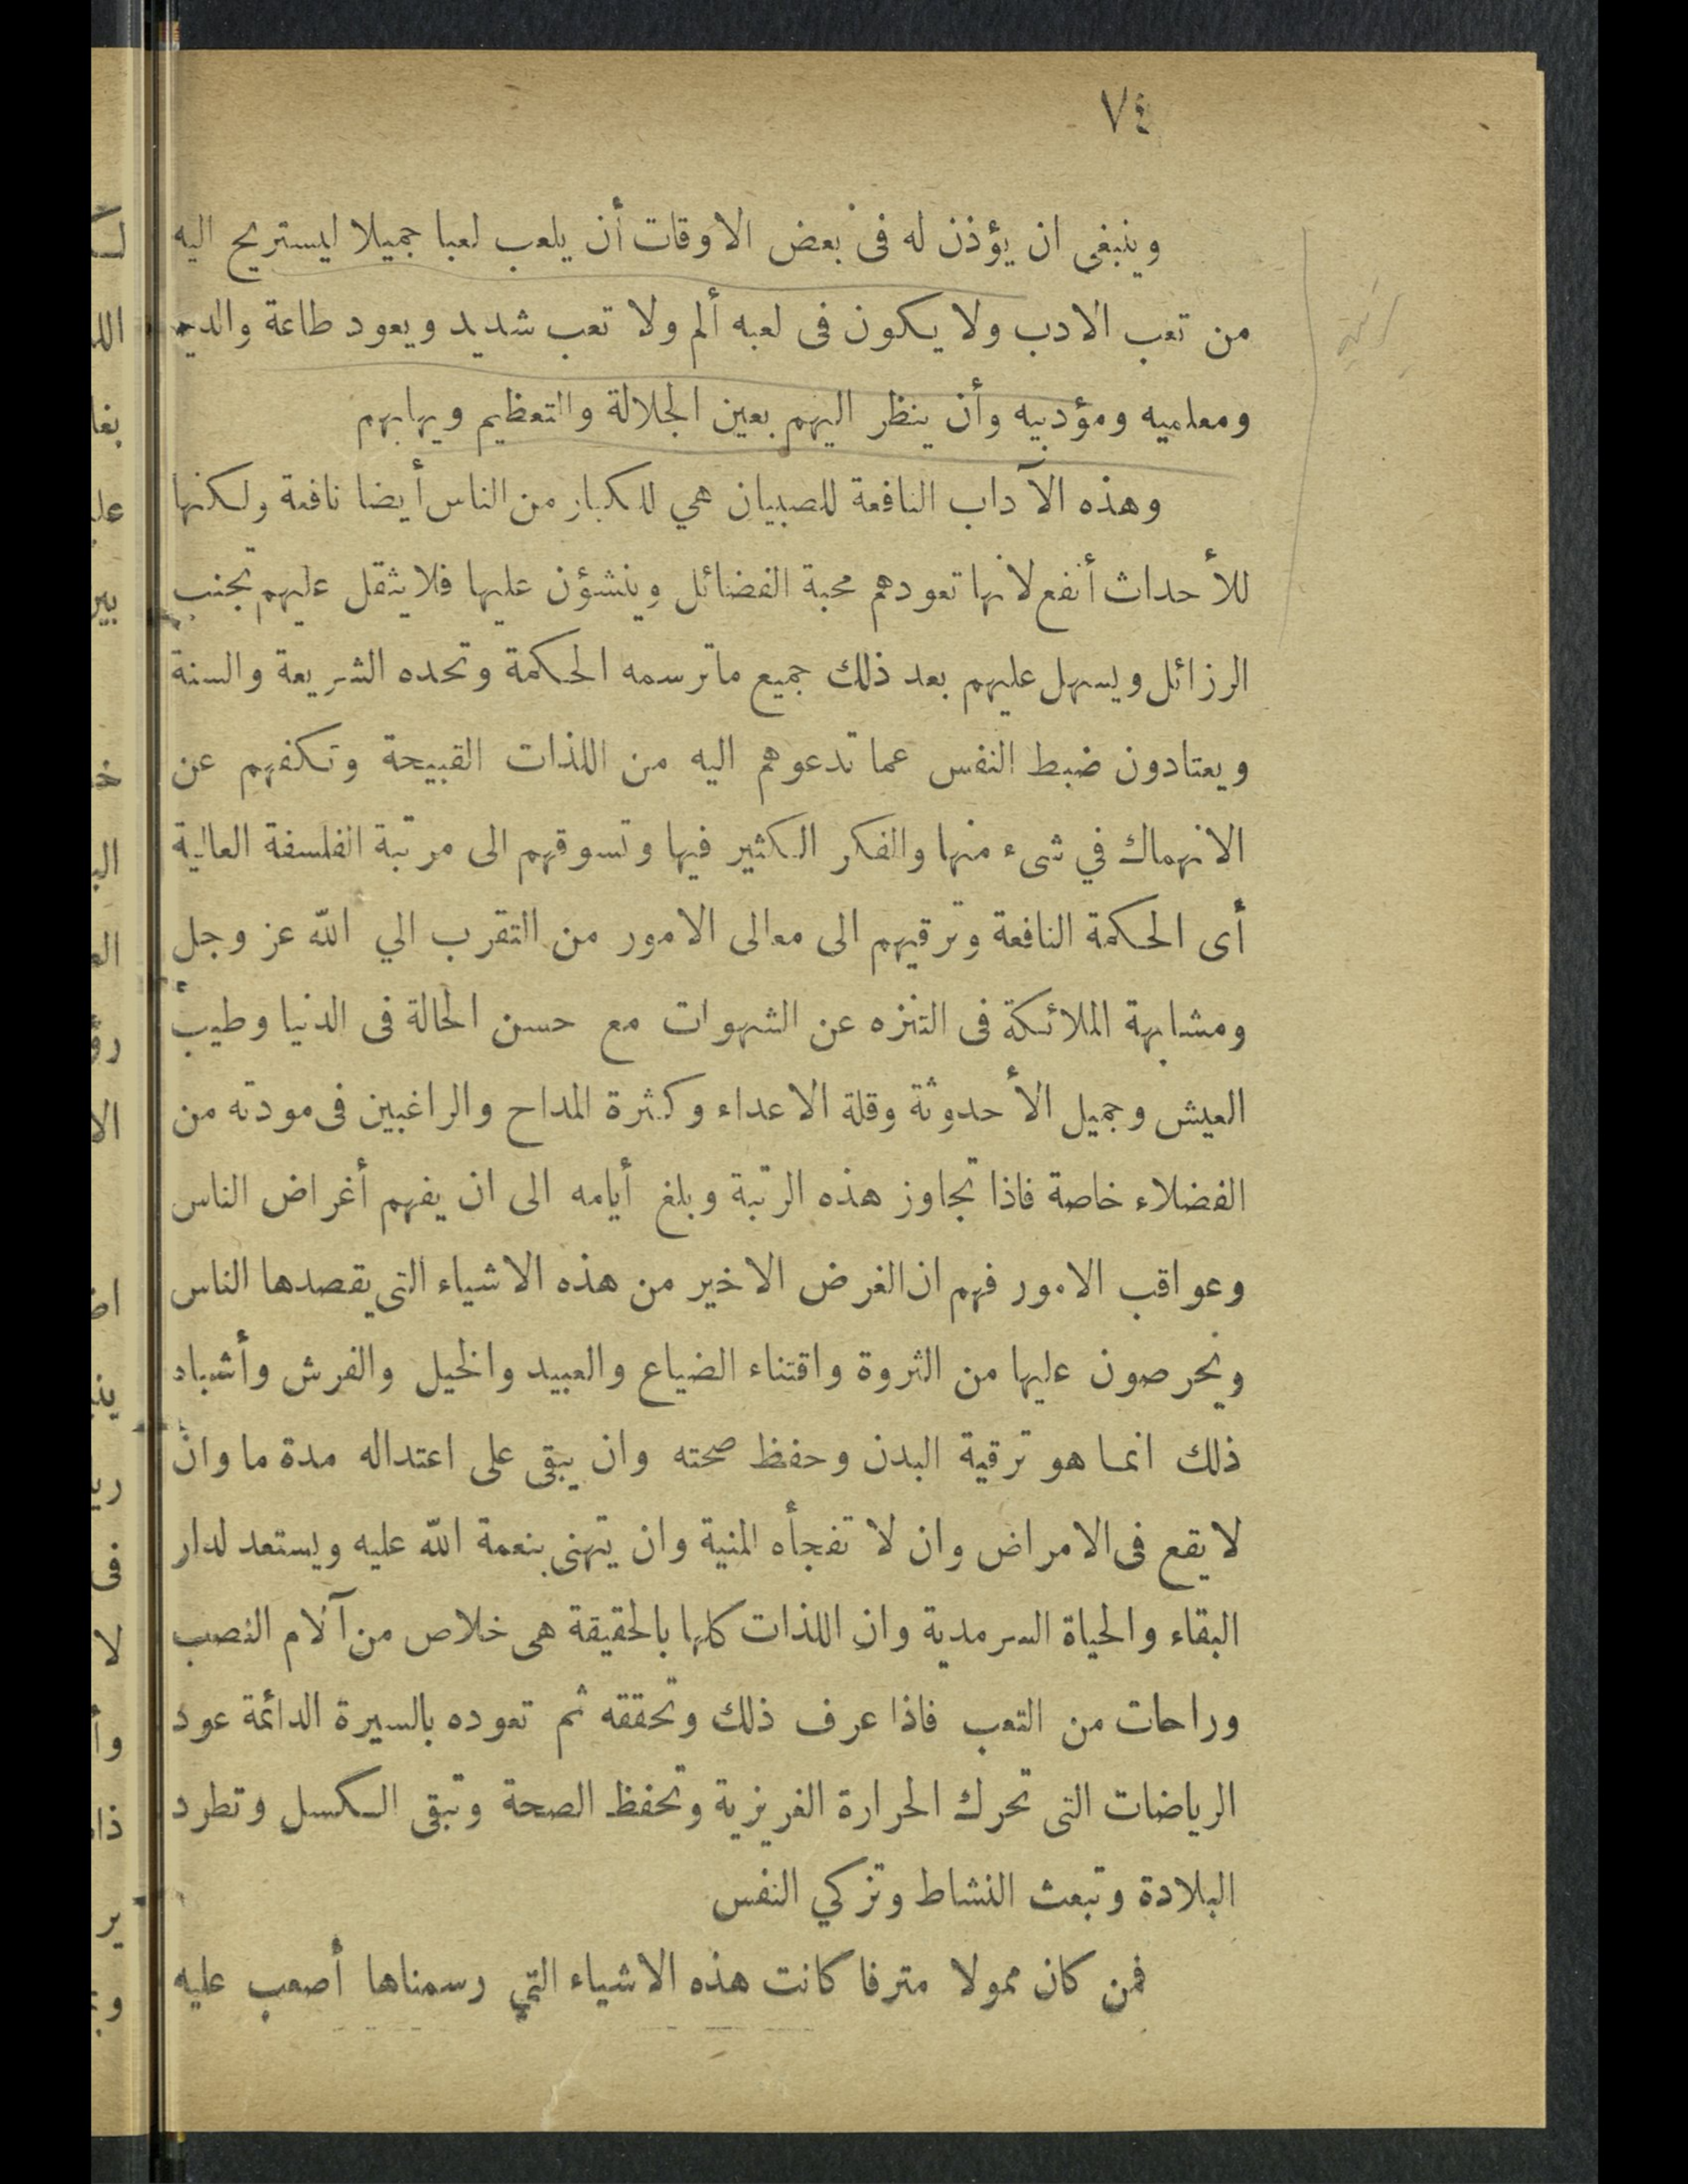 ٧٤
وينبغى ان يؤذن له فى بعض الاوقات أن يلعب لعبا جميلا ليستريح اليه
من تعب الادب ولا يكون فى لعبه ألم ولا تعب شديد ويعود طاعة والديه
ومعلميه ومؤدبيه وأن ينظر اليهم بعين الجلالة والتعظيم ويهابهم
وهذه الآداب النافعة للصبيان هي للكبار من الناس أيضا نافعة ولكنها
للأحداث أنفع لانها تعودهم محبة الفضائل وينشؤن عليها فلا يثقل عليهم تجنب
الرزائل ويسهل عليهم بعد ذلك جميع ماترسمه الحكمة وتحده الشريعة والسنة
ويعتادون ضبط النفس عما تدعوهم اليه من اللذات القبيحة وتكفهم عن
الانهماك في شىء منها والفكر الكثير فيها وتسوقهم الى مرتبة الفلسفة العالية
أى الحكمة النافعة وترقيهم الى معالى الامور من التقرب الي الله عز وجل
ومشابهة الملائكة فى التنزه عن الشهوات مع حسن الحالة فى الدنيا وطيب
العيش وجميل الأحدوثة وقلة الاعداء وكثرة المداح والراغبين فى مودته من
الفضلاء خاصة فاذا تجاوز هذه الرتبة وبلغ أيامه الى ان يفهم أغراض الناس
وعواقب الامور فهم ان الغرض الاخير من هذه الاشياء التى يقصدها الناس
ويحرصون عليها من الثروة واقتناء الضياع والعبيد والخيل والفرش وأشباه
ذلك انما هو ترقية البدن وحفظ صحته وان يبقى على اعتداله مدة ما وان
لا يقع فى الامراض وان لا تفجأه المنية وان يتهنى بنعمة الله عليه ويستعد لدار
البقاء والحياة السرمدية وان اللذات كلها بالحقيقة هى خلاص من آلام النصب
وراحات من التعب فاذا عرف ذلك وتحققه ثم تعوده بالسيرة الدائمة عود
الرياضات التى تحرك الحرارة الغريزية وتحفظ الصحة وتبقى الكسل وتطرد
البلادة وتبعث النشاط وتزكي النفس
فمن كان ممولا مترفا كانت هذه الاشياء التي رسمناها أصعب عليه